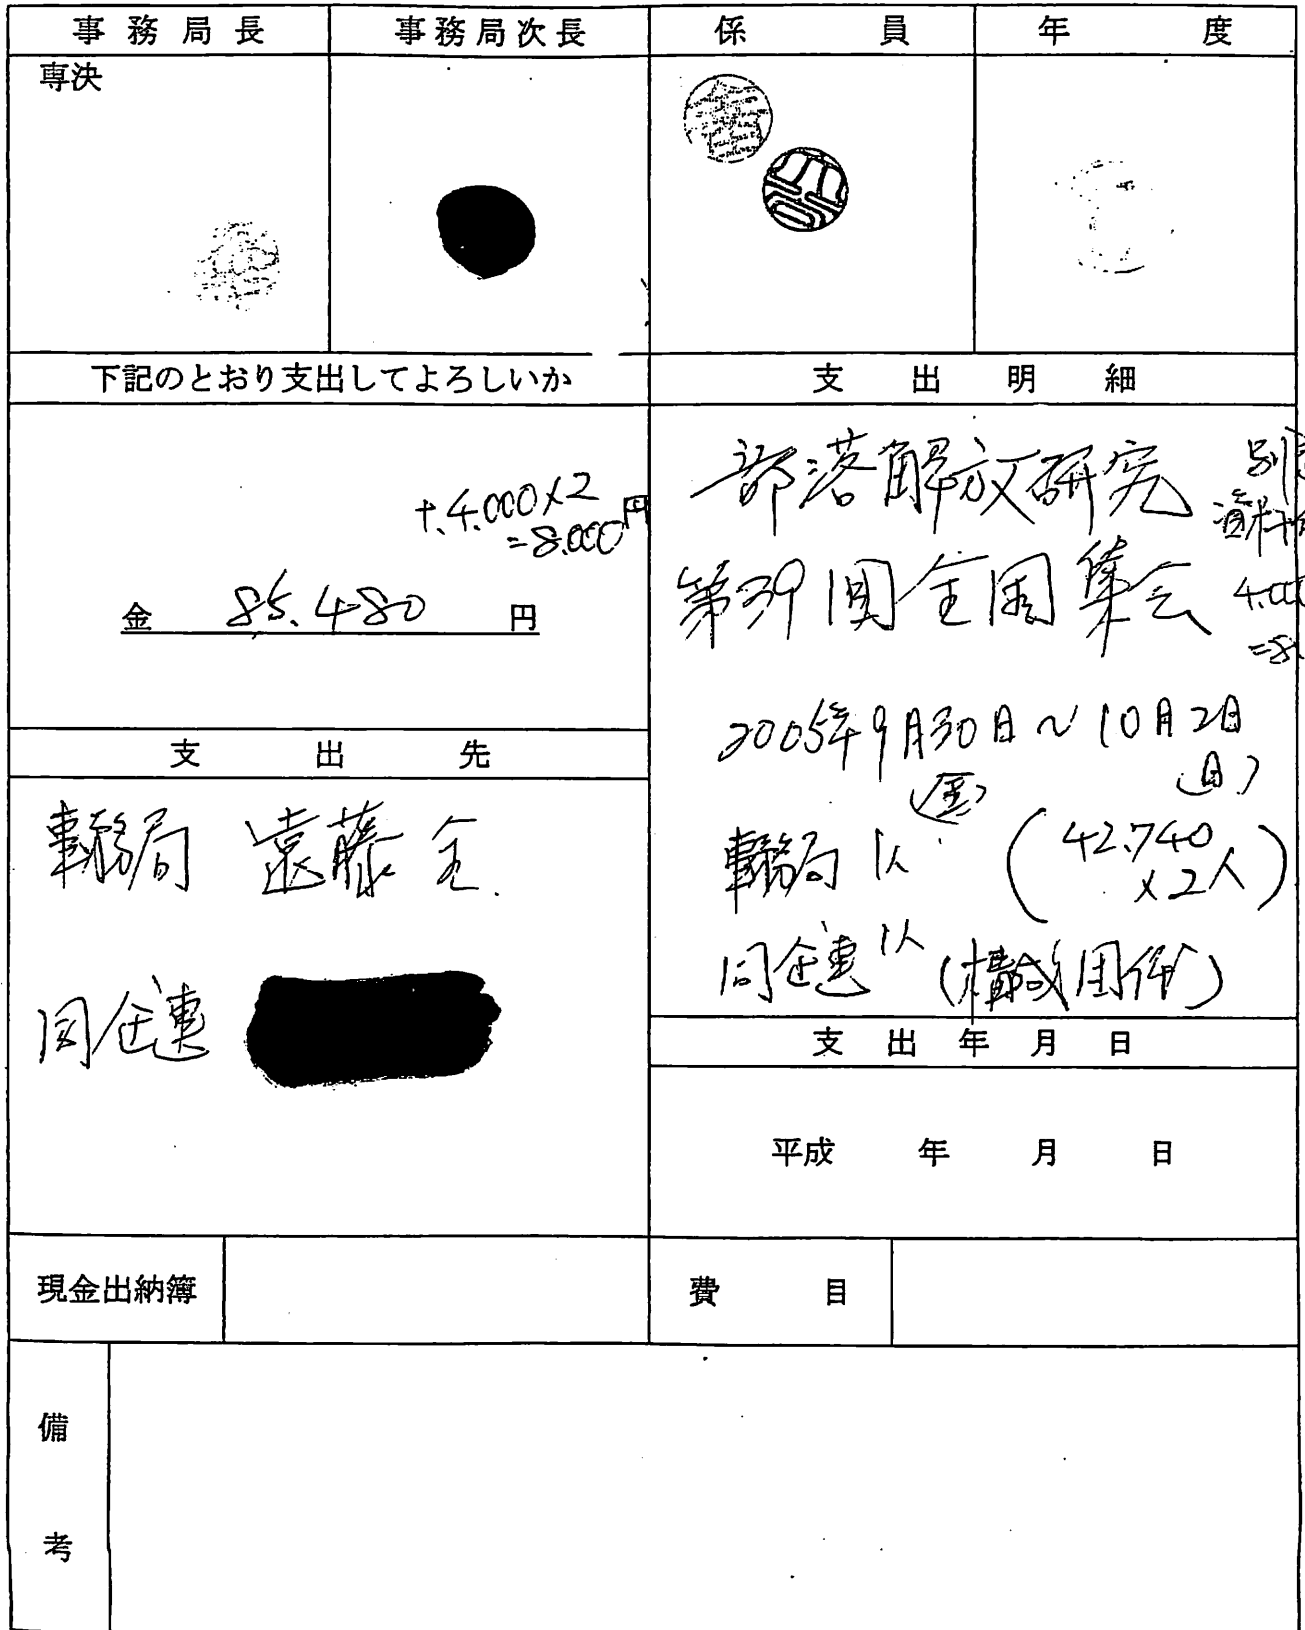 事務局長
事務局次長
係員
年度
専決
下記のとおり支出してよろしいか
+4,000×2
=8,000円
金 85,480 円
支出先
事務局 遠藤 全
同企連
支出明細
部落解放研究
第39回全国集会
別途
資料代
2005年9月30日~10月2日
(金) (日)
事務局 1人 (42,740
×2人)
同企連 1人 (構成団体)
支出年月日
平成 年 月 日
現金出納簿
費目
備考